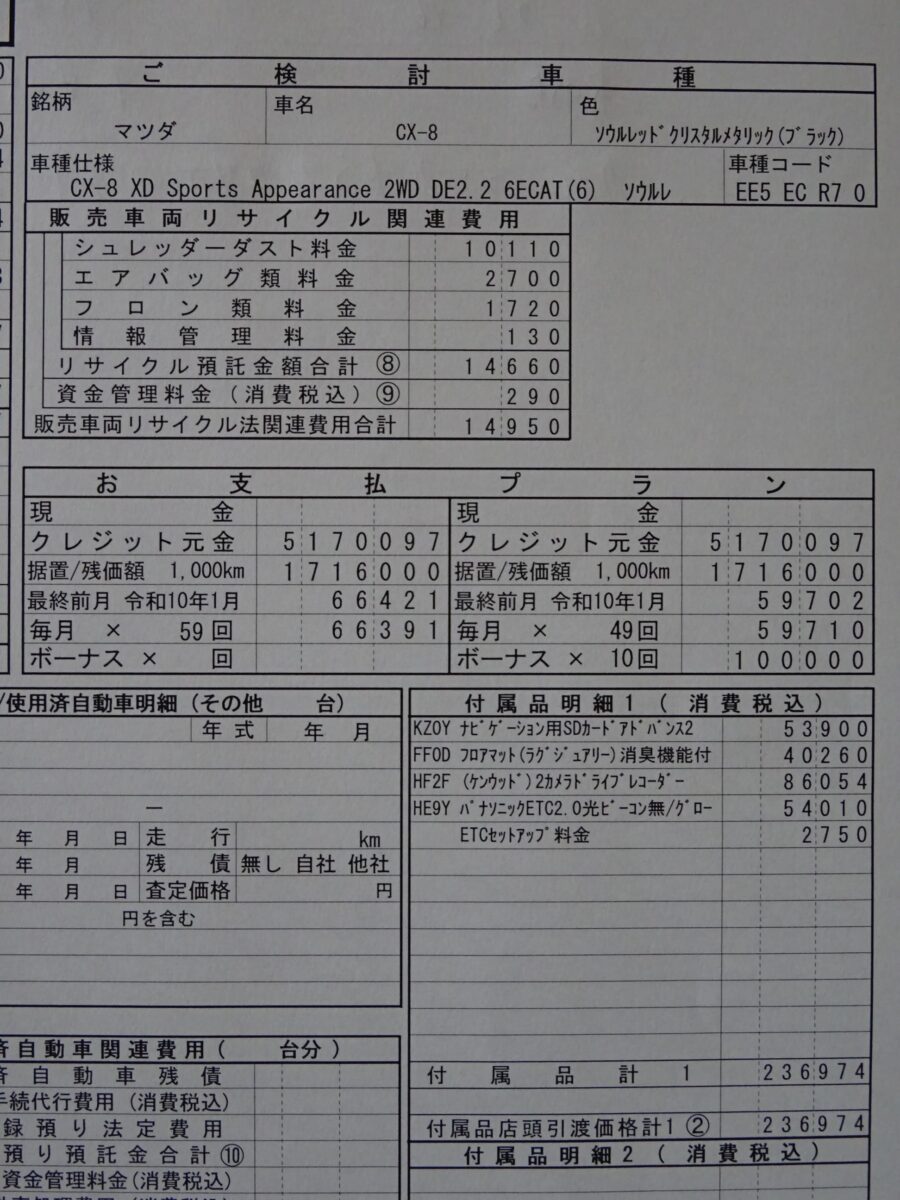 ご検討車種
銘柄 車名 色
マツダ CX-8 ソウルレッドクリスタルメタリック(ブラック)
車種仕様 車種コード
CX-8 XD Sports Appearance 2WD DE2.2 6ECAT(6) ソウルレ EE5 EC R7 0
販売車両リサイクル関連費用
シュレッダーダスト料金 10110
エアバッグ類料金 2700
フロン類料金 1720
情報管理料金 130
リサイクル預託金額合計⑧ 14660
資金管理料金(消費税込)⑨ 290
販売車両リサイクル法関連費用合計 14950
お支払プラン
現金 現金
クレジット元金 5170097 クレジット元金 5170097
据置/残価額 1,000km 1716000 据置/残価額 1,000km 1716000
最終前月 令和10年1月 66421 最終前月 令和10年1月 59702
毎月 × 59回 66391 毎月 × 49回 59710
ボーナス × 回 ボーナス × 10回 100000
/使用済自動車明細(その他 台)
年式 年 月
ー
年 月 日 走行 km
年 月 残債 無し 自社 他社
年 月 日 査定価格 円
円を含む
付属品明細1(消費税込)
KZ0Y ナビゲーション用SDカードアドバンス2 53900
FF0D フロアマット(ラグジュアリー)消臭機能付 40260
HF2F (ケンウッド)2カメラドライブレコーダー 86054
HE9Y パナソニックETC2.0光ビーコン無/グロー 54010
ETCセットアップ料金 2750
付属品計1 236974
付属品店頭引渡価格計1② 236974
付属品明細2(消費税込)
済自動車関連費用( 台分)
済自動車残債
手続代行費用(消費税込)
録預り法定費用
預り預託金合計⑩
資金管理料金(消費税込)